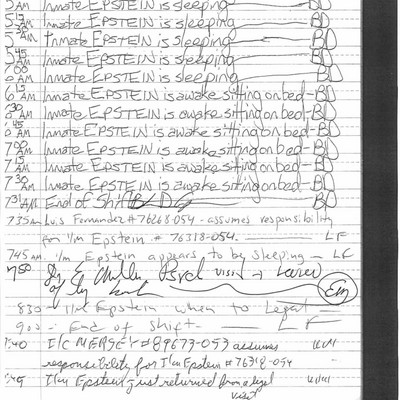 5 AM Inmate EPSTEIN is sleeping BD
5 15 AM Inmate EPSTEIN is sleeping BD
5 30 AM Inmate EPSTEIN is sleeping BD
5 45 AM Inmate EPSTEIN is sleeping BD
AM Inmate EPSTEIN is sleeping BD
6 15 AM Inmate EPSTEIN is awake sitting on bed - BD
30 AM Inmate EPSTEIN is awake sitting on bed - BD
45 AM Inmate EPSTEIN is awake sitting on bed - BD
7 00 AM Inmate EPSTEIN is awake sitting on bed - BD
7 15 AM Inmate EPSTEIN is awake sitting on bed - BD
7 30 AM Inmate EPSTEIN is awake sitting on bed - BD
AM End of Shift
735 AM Luis Fernandez # 76268-054 - assumes responsibility
for I/m Epstein # 76318-054. LF
745 AM I/m Epstein appears to be sleeping - LF
750
830 - I/m Epstein when to Legal
900 - End of Shift - LF
:40 I/C MERSEY # 89673-053 assumes
responsibility for I/m Epstein # 76318-054
I/m Epstein just returned from a legal
visit